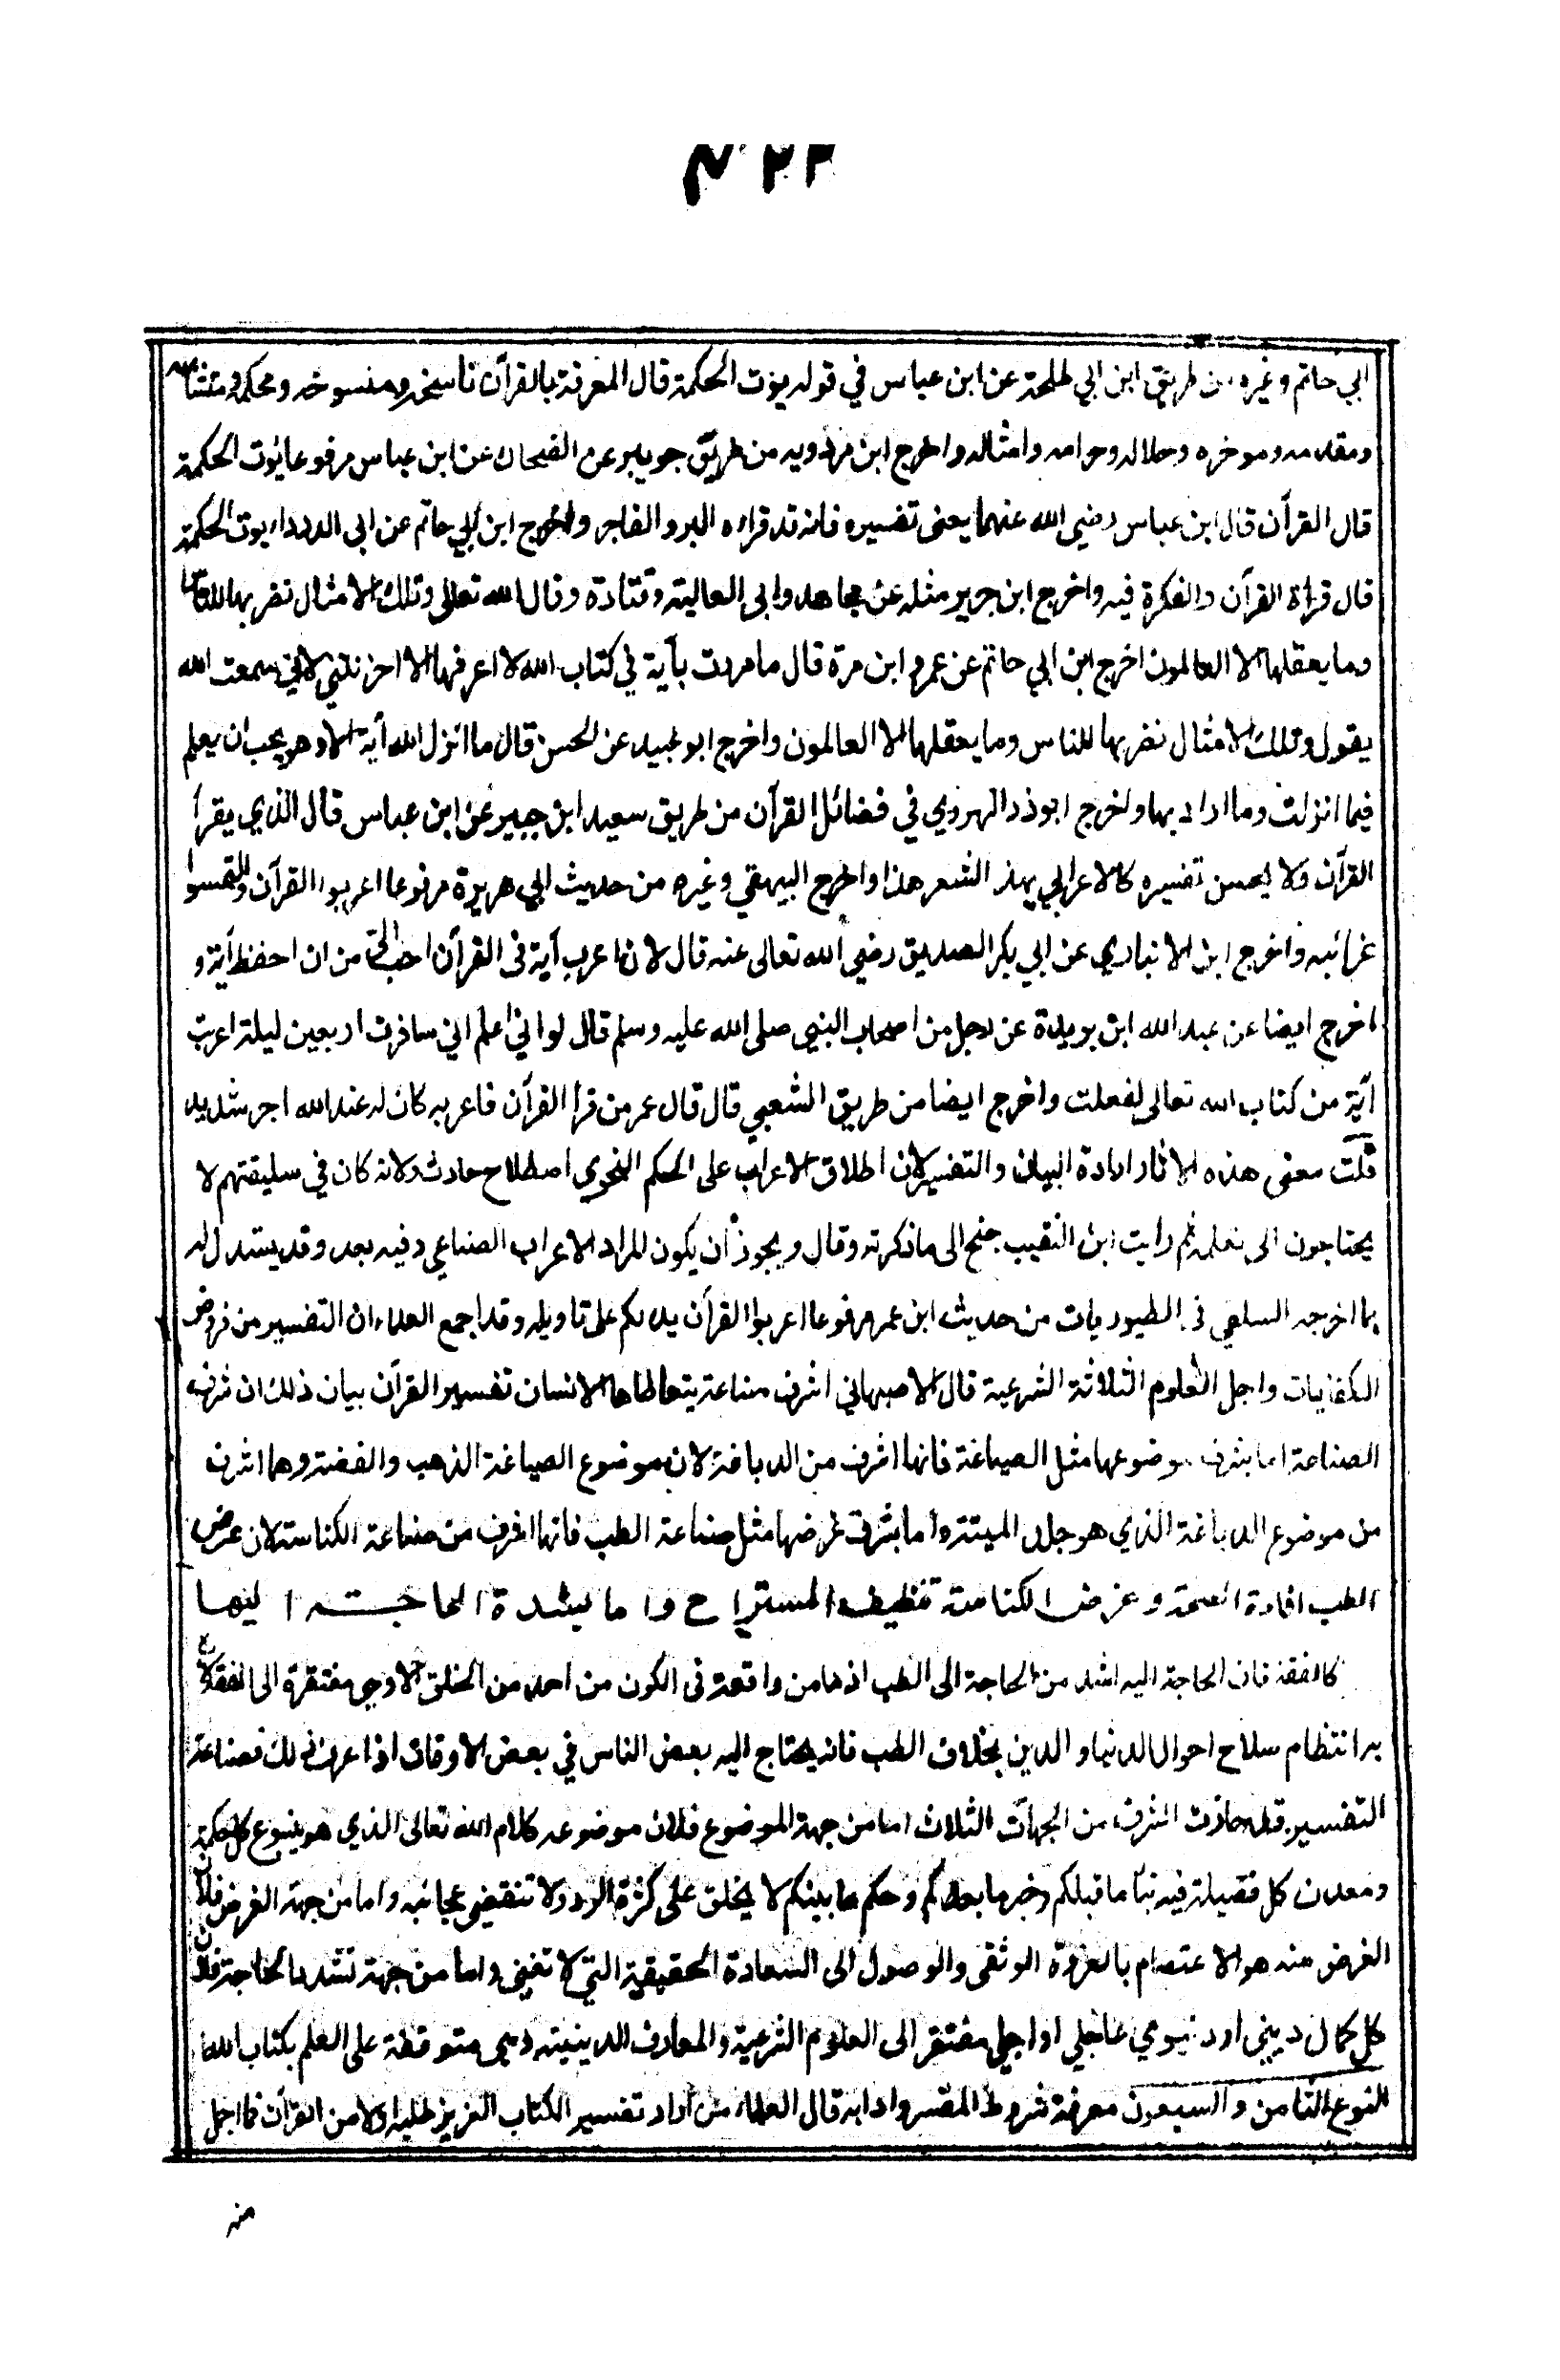 ابي حاتم وغيره من طريق ابن ابي طلحة عن ابن عباس في قوله يؤت الحكمة قال المعرفة بالقرآن ناسخه ومنسوخه ومحكمه ومتشابهه
ومقدمه وموخره وحلاله وحرامه وامثاله واخرج ابن مردويه من طريق جويبر عن الضحاك عن ابن عباس مرفوعا يؤت الحكمة
قال القرآن قال ابن عباس رضي الله عنهما يعنى تفسيره فانه قد قراه البر والفاجر واخرج ابن ابي حاتم عن ابى الدرداء يوت الحكمة
قال قراة القرآن والفكرة فيه واخرج ابن جرير مثله عن مجاهد وابى العالية وقتادة وقال الله تعالى وتلك الامثال نضربها للناس
وما يعقلها الا العالمون اخرج ابن ابي حاتم عن عمرو ابن مرة قال ما مررت بآية في كتاب الله لا اعرفها الا احزنتني لاني سمعت الله
يقول وتلك الامثال نضربها للناس وما يعقلها الا العالمون واخرج ابو عبيد عن الحسن قال ما انزل الله آية الا وهو يحب ان يعلم
فيما انزلت وما اراد بها واخرج ابوذر الهروي في فضائل القرآن من طريق سعيد ابن جبير عن ابن عباس قال الذي يقرأ
القرآن ولا يحسن تفسيره كالاعرابي يهذ الشعر هذا واخرج البيهقي وغيره من حديث ابي هريرة مرفوعا اعربوا القرآن والتمسوا
غرائبه واخرج ابن الانباري عن ابي بكر الصديق رضي الله تعالى عنه قال لان اعرب آية فى القرآن احب الي من ان احفظ آية و
اخرج ايضا عن عبد الله ابن بريدة عن رجل من اصحاب النبي صلى الله عليه وسلم قال لو اني اعلم اني سافرت اربعين ليلة اعربت
آية من كتاب الله تعالى لفعلت واخرج ايضا من طريق الشعبي قال قال عمر من قرا القرآن فاعربه كان له عند الله اجر شديد
قلت معنى هذه الاثار ارادة البيان والتفسير لان اطلاق الاعراب على الحكم النحوي اصطلاح حادث ولانه كان في سليقتهم لا
يحتاجون الى تعلمه ثم رايت ابن النقيب جنح الى ما ذكرته وقال ويجوز أن يكون المراد الاعراب الصناعي وفيه بعد وقد يستدل له
بما اخرجه السلفي فى الطيوريات من حديث ابن عمر مرفوعا اعربوا القرآن يدلكم على تاويله وقد اجمع العلماء ان التفسير من فروض
الكفايات واجل العلوم الثلاثة الشرعية قال الاصبهاني اشرف صناعة يتعاطاها الانسان تفسير القرآن بيان ذلك ان شرف
الصناعة اما بشرف موضوعها مثل الصياغة فانها اشرف من الدباغة لان موضوع الصياغة الذهب والفضة وهما اشرف
من موضوع الدباغة الذي هو جلد الميتة واما بشرف غرضها مثل صناعة الطب فانها اشرف من صناعة الكناسة لان غرض
الطب افادة الصحة وغرض الكناسة تنظيف المستراح واما لشدة الحاجة اليها
كالفقه فان الحاجة اليه اشد من الحاجة الى الطب اذ ما من واقعة فى الكون من احد من الخلق الا وهي مفتقرة الى الفقه لان
به انتظام سلاح احوال الدنيا والدين بخلاف الطب فانه يحتاج اليه بعض الناس في بعض الاوقات اذا عرف ذلك فصناعة
التفسير قد حازت الشرف من الجهات الثلاث اما من جهة الموضوع فلان موضوعه كلام الله تعالى الذي هو ينبوع كل حكمة
ومعدن كل فضيلة فيه نبأ ما قبلكم وخبر ما بعدكم وحكم ما بينكم لا يخلق على كثرة الرد ولا تنقضي عجائبه واما من جهة الغرض فلان
الغرض منه هو الاعتصام بالعروة الوثقى والوصول الى السعادة الحقيقية التي لا تفنى واما من جهة شدة الحاجة فلان
كل كمال ديني او دنيوي عاجلي او اجلي مفتقر الى العلوم الشرعية والمعارف الدينية وهى متوقفة على العلم بكتاب الله
النوع الثامن والسبعون معرفة شروط المفسر وادابه قال العلماء من اراد تفسير الكتاب العزيز طلبه اولا من القرآن فما اجمل
منه